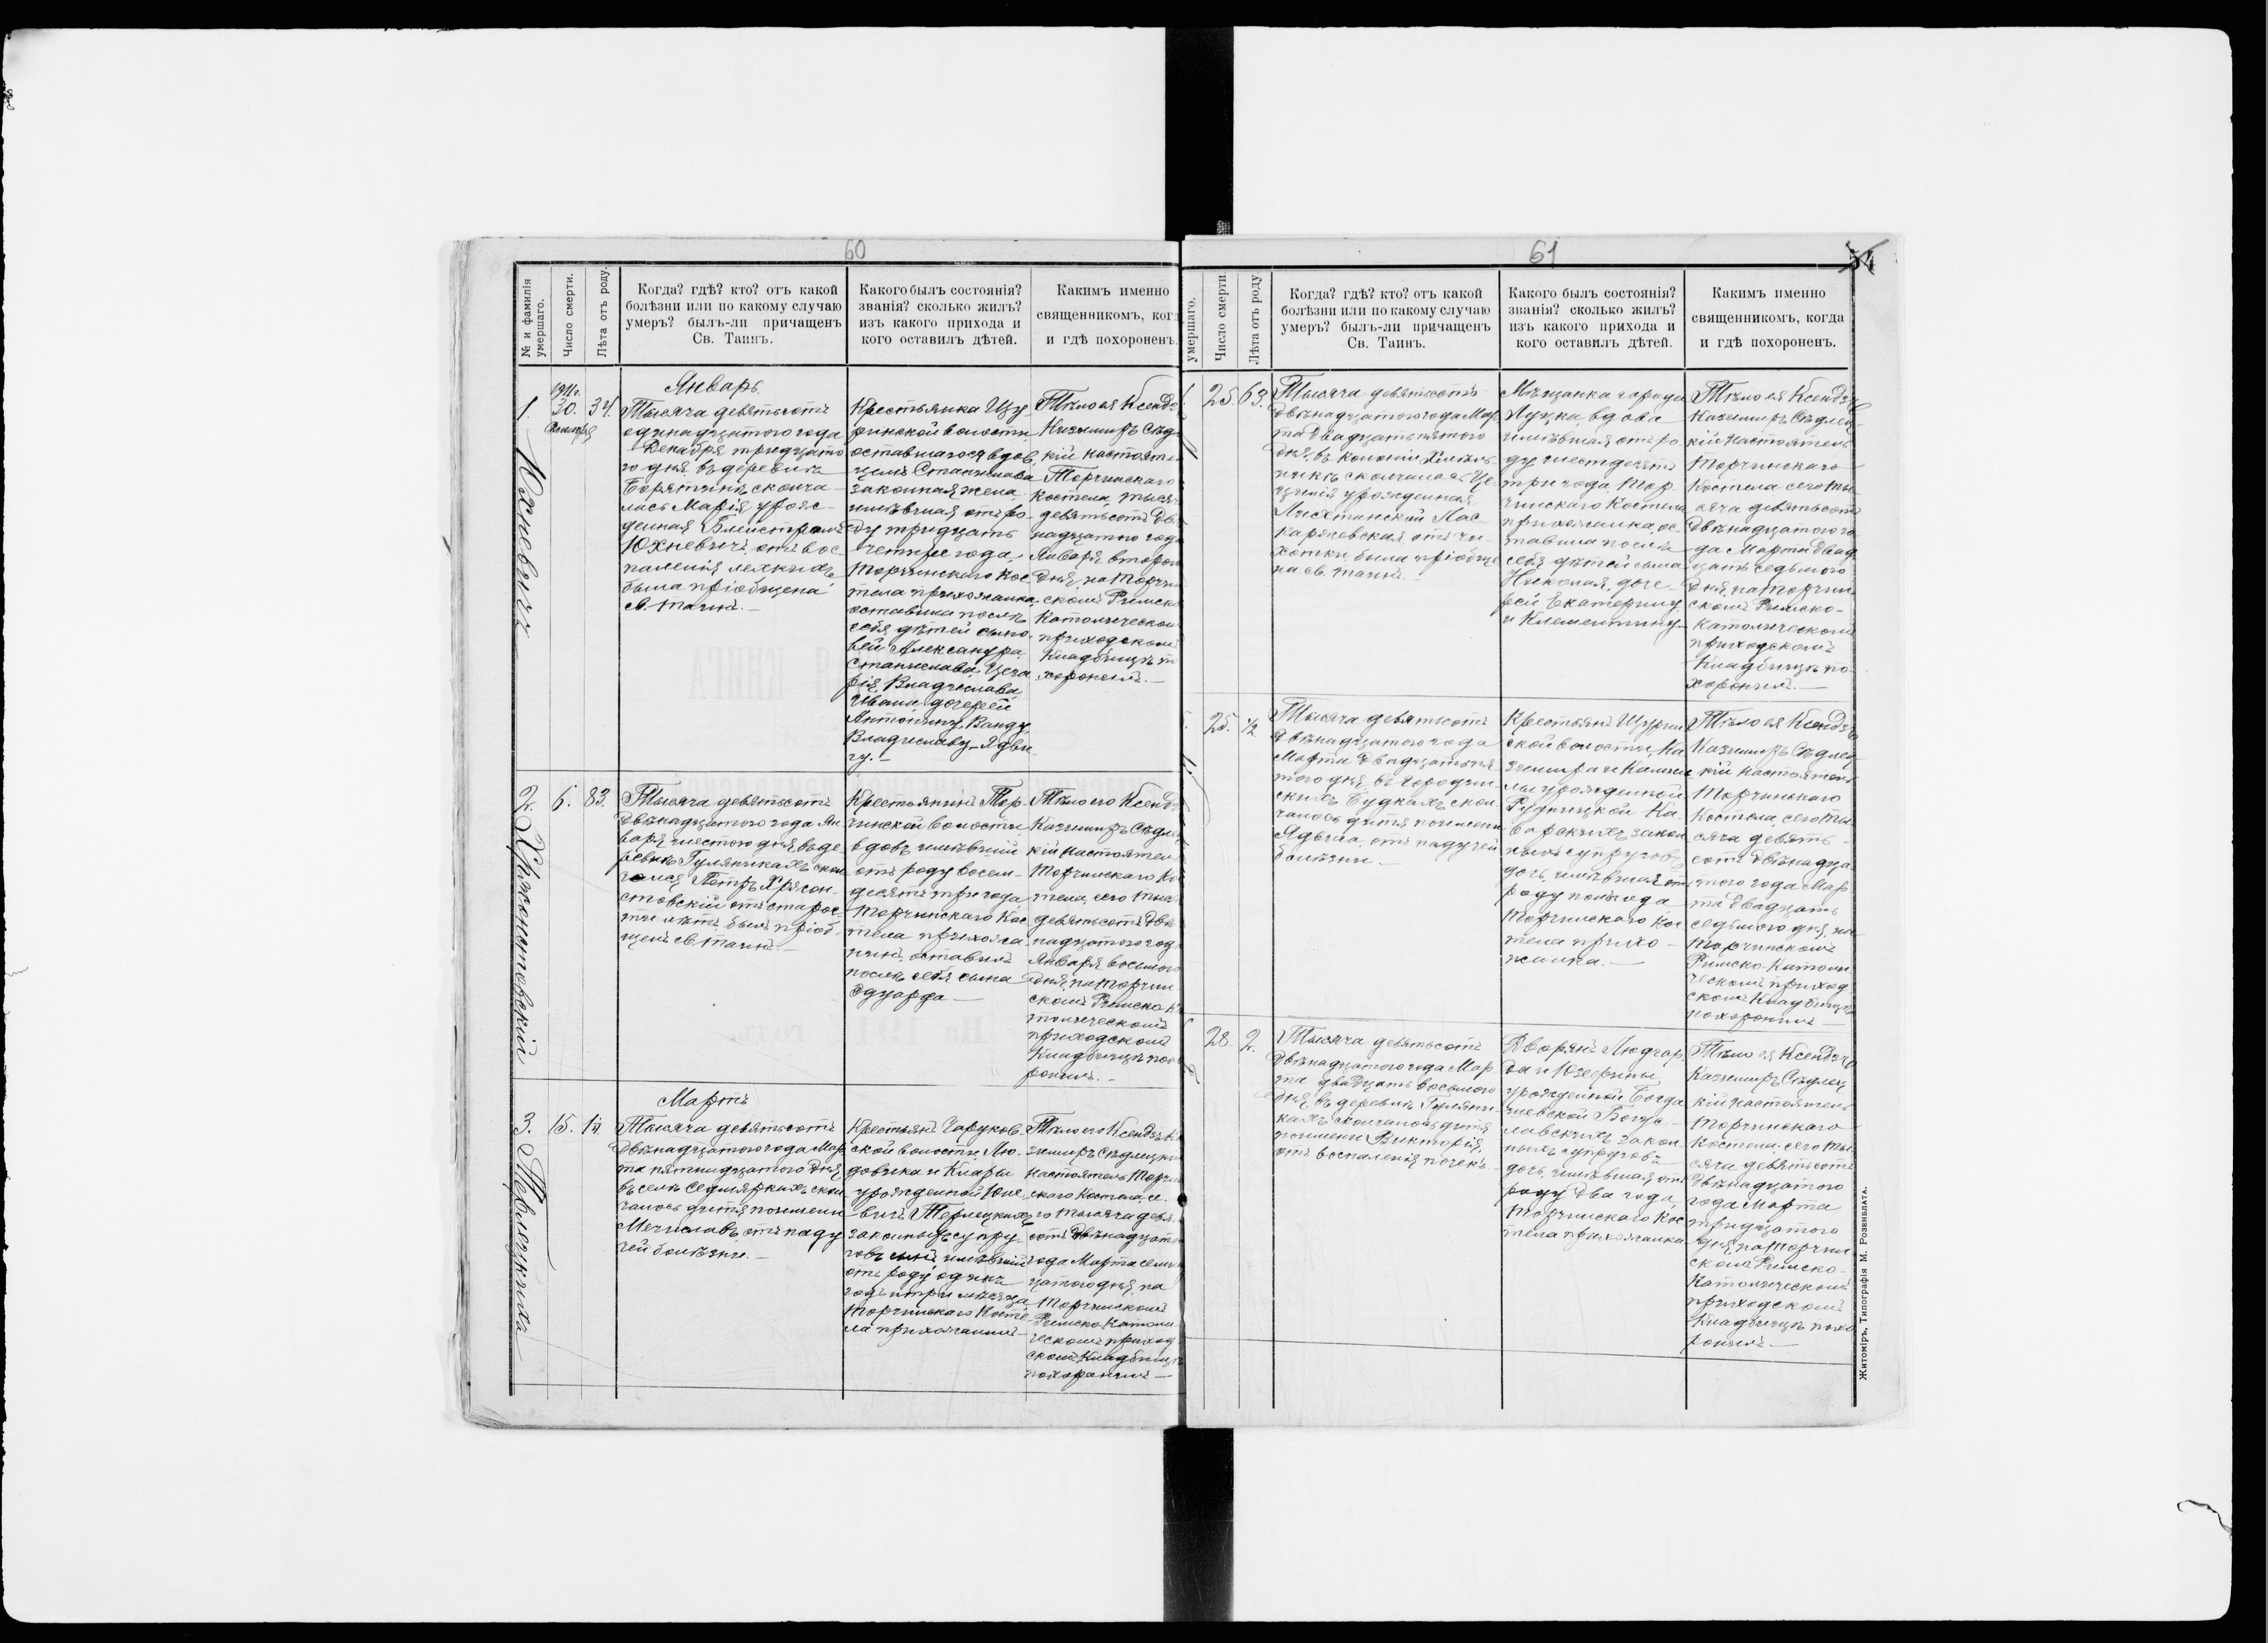 60
№ и фамилія
умершаго.
Число смерти.
Лѣта отъ роду.
Когда? гдѣ? кто? отъ какой
болѣзни или по какому случаю
умеръ? былъ-ли причащенъ
Св. Таинъ.
Какого былъ состоянія?
званія? сколько жилъ?
изъ какого прихода и
кого оставилъ дѣтей.
Какимъ именно
священникомъ, ког
и гдѣ похороненъ.
1.
Юхневичъ
1911г.
30.
Декабря
34.
Январь.
Тысяча девятьсотъ
одинадцатого года
Декабря тридцато
го дня въ деревнѣ
Борятинѣ сконча
лась Марія урож
денная
Юхневичъ, отъ вос
паленія легкихъ
была пріобщена
св. таинъ. —
Крестьянка Щу-
ринской волости
оставшагося вдов
цемъ Станислава
законная жена
имѣвшая отъ ро-
ду тридцать
четыре года,
Торчинскаго Кос
тела прихожанка,
оставила послѣ
себя дѣтей сыно
вей Александра,
Станислава, Цеза
рія, Владислава,
Ивана, дочерей
Антонину, Ванду,
Владиславу, Ядви
гу. —
Тѣло ея Ксендз
Казимиръ Сѣд
кій настояте
Торчинскаго
Костела, тыся
девятьсотъ Дв
надцатого года
Января второго
дня, на Торчи
скомъ Римско
Католическом
приходскомъ
Кладбищѣ п
хоронилъ. —
2.
Хржонстовскій
6.
83.
Тысяча девятьсотъ
двѣнадцатого года Ян
варя шестого дня, въ де
ревнѣ Гуляникахъ скон
чался Петръ Хржон-
стовскій отъ старос
ти лѣтъ былъ пріоб
щенъ св. таинъ. —
Крестьянинъ Тор-
чинской волости
вдовъ имѣвшій
отъ роду восем-
десятъ три года
Торчинскаго Кос
тела прихожа
нинъ, оставилъ
послѣ себя сына
Эдуарда —
Тѣло его Ксендз
Казимиръ Сѣдле
кій настоятел
Торчинскаго Ко
тела, сего тыс
девятьсотъ двѣ
надцатого год
Января восьмого
дня, на Торчин
скомъ Римско К
толическомъ
приходскомъ
Кладбищѣ похо
ронилъ. —
3.
Терлецкихъ
15.
1¼.
Мартъ
Тысяча девятьсотъ
двѣнадцатого года Мар
та пятнадцатого дня
въ селѣ Седмяркахъ скон
чалось дитя по имени
Мечиславъ отъ паду
чей болѣзни. —
Крестьянъ Чаруков
ской волости, Лю-
довика и Клары
урожденной Юне
вичъ Терлецкихъ
законныхъ супру
говъ сынъ, имѣвшій
отъ роду одинъ
годъ и три мѣсяца,
Торчинскаго Косте
ла прихожанинъ —
Тѣло его Ксендзъ Ка
зимиръ Сѣдлецкій
настоятель Торчин
скаго Костела, се
го тысяча девя
сотъ двѣнадцато
года Марта семна
цатого дня, на
Торчинскомъ
Римско-Католи
ческомъ приход
скомъ Кладбищѣ
похоронилъ —
61
54
умершаго.
Число смерти
Лѣта отъ роду
Когда? гдѣ? кто? отъ какой
болѣзни или по какому случаю
умеръ? былъ-ли причащенъ
Св. Таинъ.
Какого былъ состоянія?
званія? сколько жилъ?
изъ какого прихода и
кого оставилъ дѣтей.
Какимъ именно
священникомъ, когда
и гдѣ похороненъ.
25.
63.
Тысяча девятьсотъ
двѣнадцатого года Мар
та двадцать пятого
дня, въ колоніи
скончалась Це
цилія урожденная
Лас
каржевская отъ ча
хотки, была пріобще
на св. таинъ. —
Мѣщанка города
Луцка, вдова
имѣвшая отъ ро
ду шестдесятъ
три года, Тор
чинскаго Костела
прихожанка, ос
тавила послѣ
себя дѣтей сына
Николая, доче
рей Екатерину
и Клементину —
Тѣло ея Ксендзъ
Казимиръ Сѣдлец
кій настоятель
Торчинскаго
Костела сего ты
сяча девятьсотъ
двѣнадцатого го
да Марта двад
цать седьмого
дня, на Торчин
скомъ Римско-
Католическомъ
приходскомъ
Кладбищѣ по
хоронилъ. —
25.
½
Тысяча девятьсотъ
двѣнадцатого года
Марта двадцать пя
того дня, въ Городин
скихъ Будкахъ скон
чалось дитя по имени
Ядвига, отъ падучей
болѣзни. —
Крестьянъ Щурин
ской волости, Ка
зимира и Камил
лы урожденной
Рудницкой Ка
варскихъ закон
ныхъ супруговъ
дочь, имѣвшая отъ
роду полъ года
Торчинскаго Кос
тела прихо-
жанка. —
Тѣло ея Ксендзъ
Казимиръ Сѣдлец
кій настоятель
Торчинскаго
Костела, сего ты
сяча девять-
сотъ двѣнадца
того года Мар
та двадцать
седьмого дня, на
Торчинскомъ
Римско-Католи
ческомъ приход
скомъ Кладбищѣ
похоронилъ —
28
2.
Тысяча девятьсотъ
двѣнадцатого года Мар
та двадцать восьмого
дня, въ деревнѣ Гуляни
кахъ скончалось дитя
по имени Викторія,
отъ воспаленія почекъ
Дворянъ Людгар
да и Юзефины
урожденной Богда
шевской Богус-
лавскихъ закон
ныхъ супруговъ
дочь, имѣвшая отъ
роду два года,
Торчинскаго Кос
тела прихожанка
Тѣло ея Ксендзъ
Казимиръ Сѣдлец
кій настоятель
Торчинскаго
Костела, сего ты
сяча девятьсотъ
двѣнадцатого
года Марта
тридцатого
дня, на Торчин
скомъ Римско-
Католическомъ
приходскомъ
Кладбищѣ похо
ронилъ —
Житоміръ, Типографія М. Розенблата.